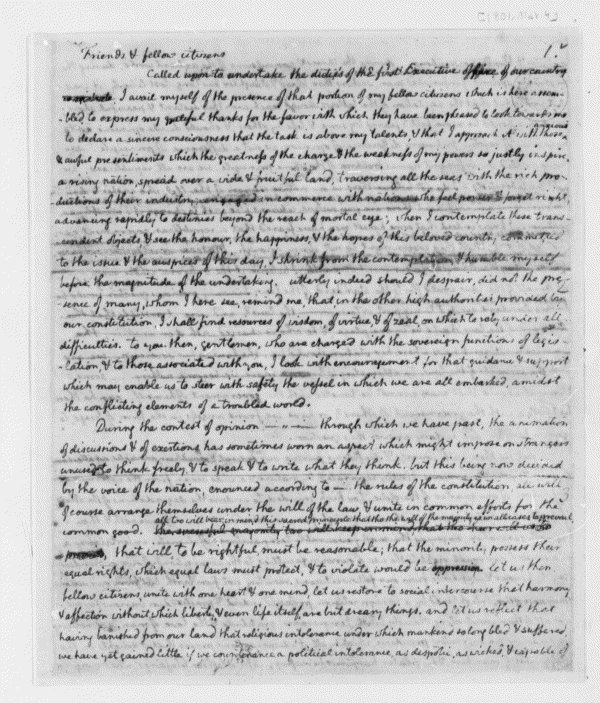 [1801, Mar 4]
1.
Friends & fellow citizens
Called upon to undertake the duties of the first Executive office of our country
I avail myself of the presence of that portion of my fellow citizens which is here assem-
-bled to express my grateful thanks for the favor with which they have been pleased to look towards me
to declare a sincere consciousness that the task is above my talents, & that I approach it with those
anxious
& awful presentiments which the greatness of the charge & the weakness of my powers so justly inspire.
a rising nation, spread over a wide & fruitful land, traversing all the seas with the rich pro-
-ductions of their industry, engaged in commerce with nations who feel power & forget right,
advancing rapidly to destinies beyond the reach of mortal eye; when I contemplate these trans-
-cendent objects, & see the honour, the happiness, & the hopes of this beloved country committed
to the issue & the auspices of this day, I shrink from the contemplation, & humble myself
before the magnitude of the undertaking. utterly indeed should I despair, did not the pre-
-sence of many, whom I here see, remind me, that in the other high authorities provided by
our constitution, I shall find resources of wisdom, of virtue, & of zeal, on which to rely under all
difficulties. to you then, gentlemen, who are charged with the sovereign functions of legis-
-lation, & to those associated with you, I look with encouragement for that guidance & support
which may enable us to steer with safety the vessel in which we are all embarked, amidst
the conflicting elements of a troubled world.
During the contest of opinion through which we have past, the animation
of discussions & of exertions has sometimes worn an aspect which might impose on strangers
unused to think freely, & to speak & to write what they think. but this being now decided
by the voice of the nation, enounced according to the rules of the constitution all will
of course arrange themselves under the will of the law, & unite in common efforts for the
all too will bear in mind this sacred principle that tho' the will of the majority is in all cases to prevail
common good.
that will to be rightful must be reasonable; that the minority possess their
equal rights, which equal laws must protect, & to violate would be oppression. let us then
fellow citizens unite with one heart & one mind, let us restore to social intercourse that harmony
& affection without which liberty, & even life itself, are but dreary things. and let us reflect that
having banished from our land that religious intolerance under which mankind so long bled & suffered
we have yet gained little if we countenance a political intolerance, as despotic, as wicked, & capable of